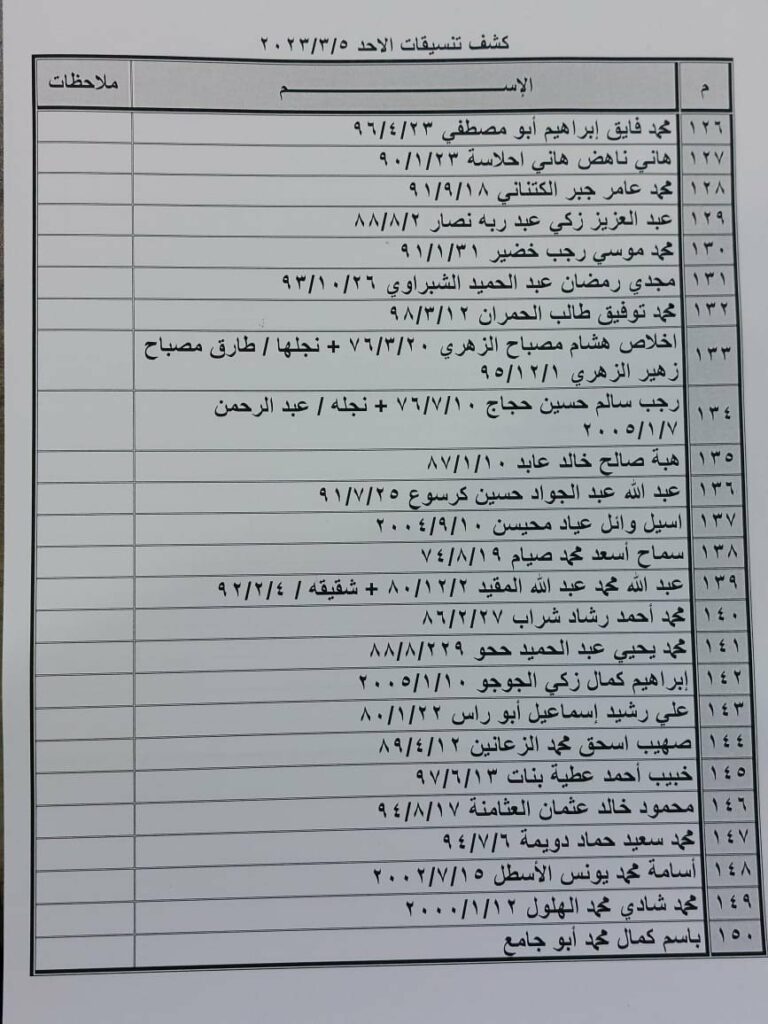 كشف تنسيقات الاحد ٢٠٢٣/٣/٥
م الإســـــــــــــــم ملاحظات
١٢٦ محمد فايق إبراهيم أبو مصطفي ٩٦/٤/٢٣
١٢٧ هاني ناهض هاني احلاسة ٩٠/١/٢٣
١٢٨ محمد عامر جبر الكتناني ٩١/٩/١٨
١٢٩ عبد العزيز زكي عبد ربه نصار ٨٨/٨/٢
١٣٠ محمد موسي رجب خضير ٩١/١/٣١
١٣١ مجدي رمضان عبد الحميد الشبراوي ٩٣/١٠/٢٦
١٣٢ محمد توفيق طالب الحمران ٩٨/٣/١٢
١٣٣ اخلاص هشام مصباح الزهري ٧٦/٣/٢٠ + نجلها / طارق مصباح
زهير الزهري ٩٥/١٢/١
١٣٤ رجب سالم حسين حجاج ٧٦/٧/١٠ + نجله / عبد الرحمن
٢٠٠٥/١/٧
١٣٥ هبة صالح خالد عابد ٨٧/١/١٠
١٣٦ عبد الله عبد الجواد حسين كرسوع ٩١/٧/٢٥
١٣٧ اسيل وائل عياد محيسن ٢٠٠٤/٩/١٠
١٣٨ سماح أسعد محمد صيام ٧٤/٨/١٩
١٣٩ عبد الله محمد عبد الله المقيد ٨٠/١٢/٢ + شقيقه / ٩٢/٢/٤
١٤٠ محمد أحمد رشاد شراب ٨٦/٢/٢٧
١٤١ محمد يحيي عبد الحميد ححو ٨٨/٨/٢٢٩
١٤٢ إبراهيم كمال زكي الجوجو ٢٠٠٥/١/١٠
١٤٣ علي رشيد إسماعيل أبو راس ٨٠/١/٢٢
١٤٤ صهيب اسحق محمد الزعانين ٨٩/٤/١٢
١٤٥ خبيب أحمد عطية بنات ٩٧/٦/١٣
١٤٦ محمود خالد عثمان العثامنة ٩٤/٨/١٧
١٤٧ محمد سعيد حماد دويمة ٩٤/٧/٦
١٤٨ أسامة محمد يونس الأسطل ٢٠٠٢/٧/١٥
١٤٩ محمد شادي محمد الهلول ٢٠٠٠/١/١٢
١٥٠ باسم كمال محمد أبو جامع